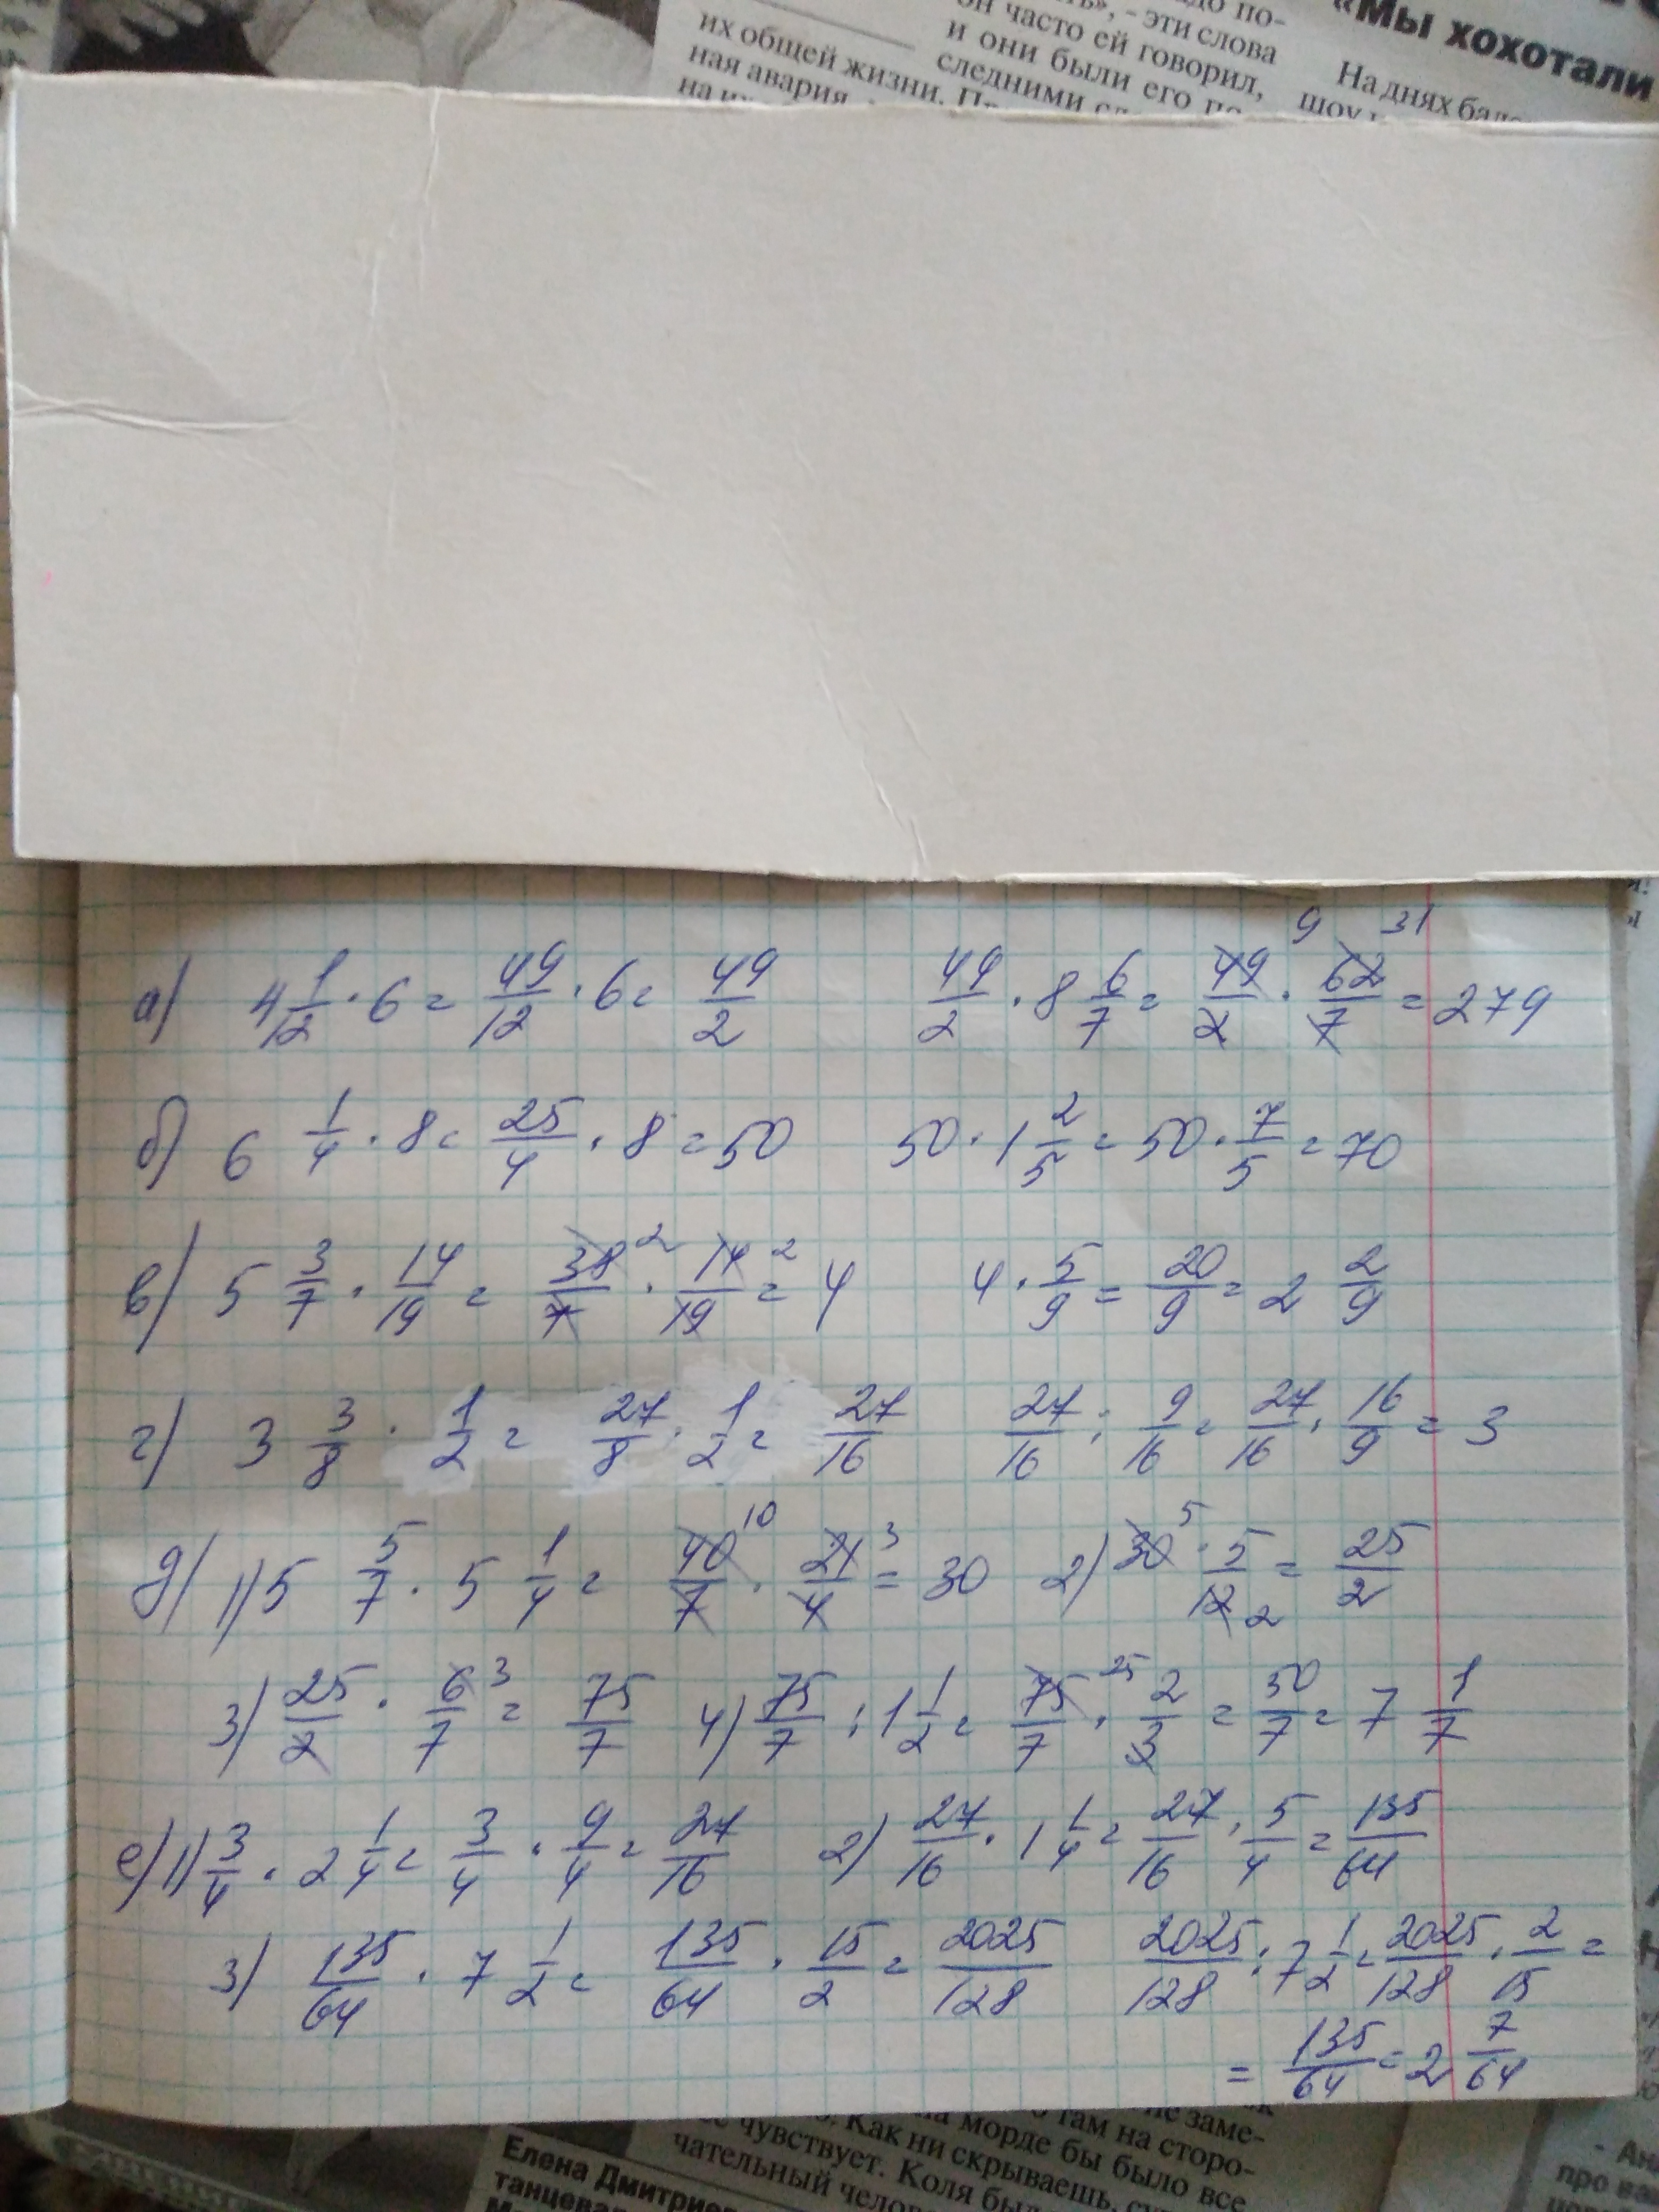 до по-
ть», - эти слова
он часто ей говорил,
и они были его по-
следними
их общей жизни.
ная авария,
«Мы хохотали
На днях
шоу
а) 4 1/12 · 6 = 49/12 · 6 = 49/2 49/2 · 8 6/7 = 49/2 9 · 62/7 31 = 279
б) 6 1/4 · 8 = 25/4 · 8 = 50 50 · 1 2/5 = 50 · 7/5 = 70
в) 5 3/7 · 14/19 = 38/7 2 · 14/19 2 = 4 4 · 5/9 = 20/9 = 2 2/9
г) 3 3/8 · 1/2 = 27/8 · 1/2 = 27/16 27/16 : 9/16 = 27/16 · 16/9 = 3
д) 1) 5 5/7 · 5 1/4 = 40/7 10 · 21/4 3 = 30 2) 30 5 · 5/12 2 = 25/2
3) 25/2 · 6/7 3 = 75/7 4) 75/7 : 1 1/2 = 75/7 25 · 2/3 = 50/7 = 7 1/7
е) 1) 3/4 · 2 1/4 = 3/4 · 9/4 = 27/16 2) 27/16 · 1 1/4 = 27/16 · 5/4 = 135/64
3) 135/64 · 7 1/2 = 135/64 · 15/2 = 2025/128 2025/128 : 7 1/2 = 2025/128 · 2/15 =
= 135/64 = 2 7/64
там на сторо-
не заме-
на морде бы было все
чувствует. Как ни скрываешь,
чательный
Коля
Елена
про